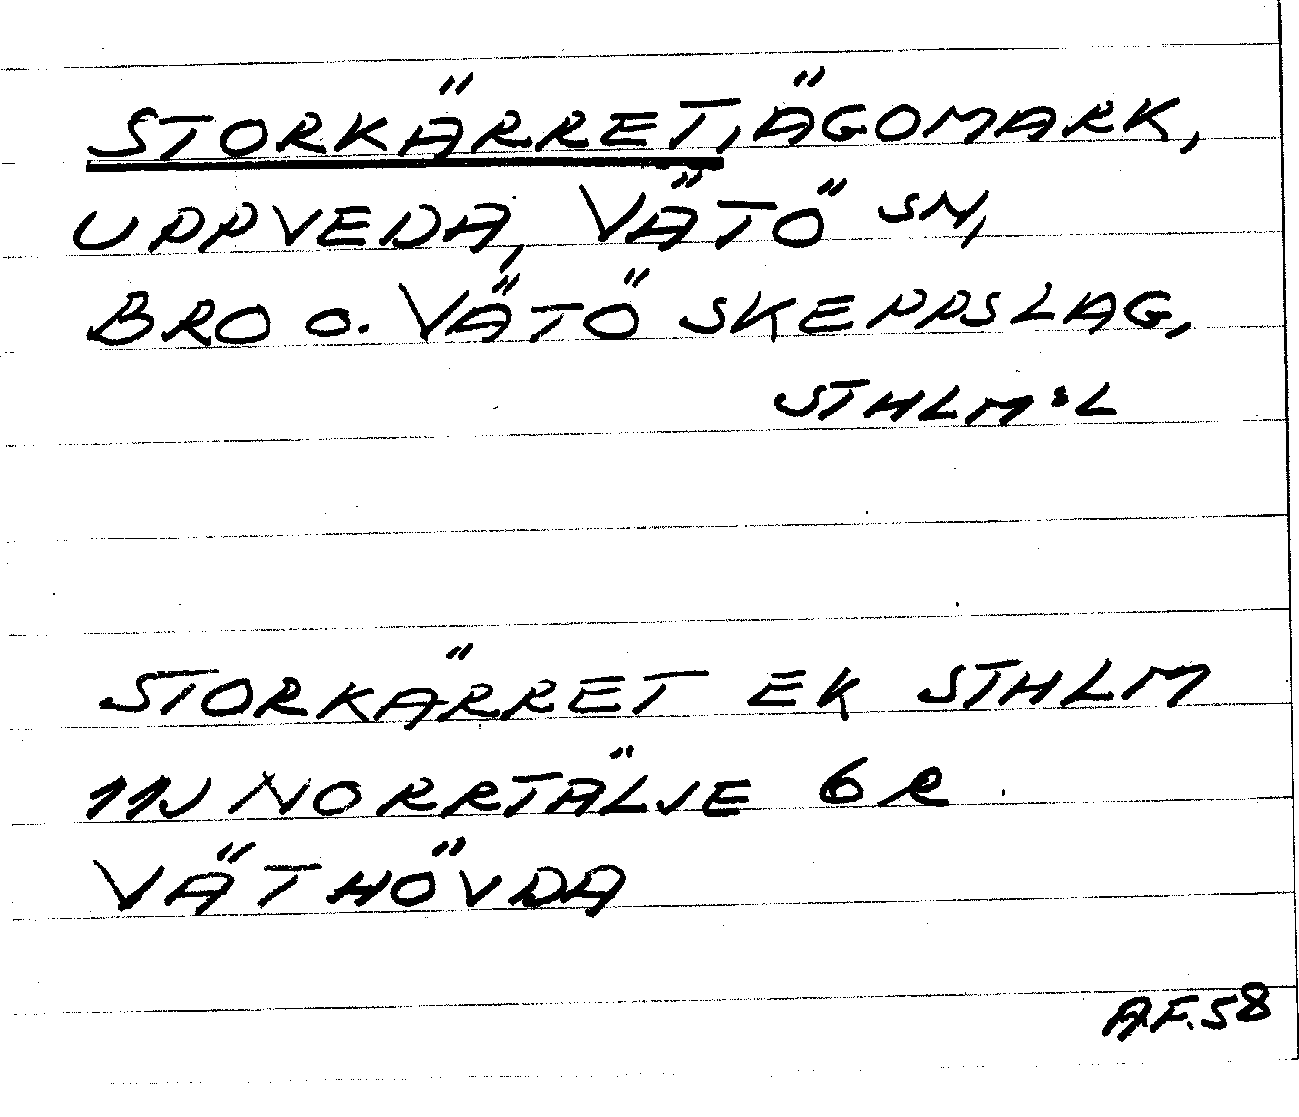 STORKÄRRET, ÄGOMARK,
UPPVEDA, VÄTÖ SN,
BRO O. VÄTÖ SKEPPSLAG,
STHLM:L
STORKÄRRET EK STHLM
11J NORRTÄLJE 6 R
VÄTHÖVDA
A.F. 58